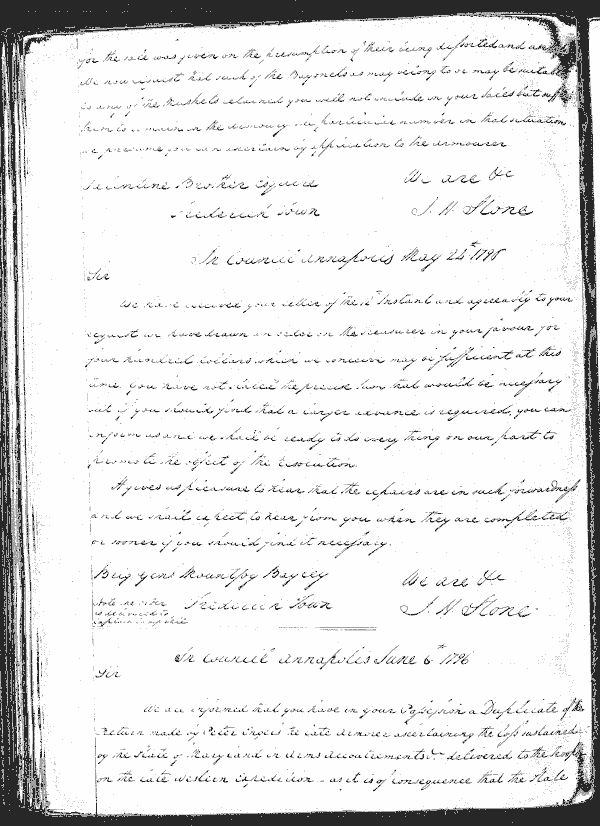 for the sale was given on the presumption of their being assorted and
We now request that such of the Bayonets as may belong to or may be suitable
to any of the Muskets retained you will not include in your Sales but suffer
them to remain in the Armoury the particular number in that situation
we presume you can ascertain by application to the Armourer
We are &c
Valentine Brother Esquire
Frederick Town
J. H. Stone
In Council Annapolis May 24th 1796
Sir
We have received your letter of the Instant and agreeably to your
request we have drawn an order on the Treasurer in your favour for
four hundred dollars which we conceive may be sufficient at this
time. you have not stated the precise sum that would be necessary
but if you should find that a larger advance is required, you can
inform us and we shall be ready to do every thing on our part to
promote the object of the Resolution.
It gives us pleasure to hear that the repairs are in such forwardness
and we shall expect to hear from you when they are completed
or sooner if you should find it necessary.
Brig Gen Mountjoy Bayley
We are &c
Note the order
is delivered to
Captain
Frederick Town
J. H. Stone
In Council Annapolis June 6th 1796
Sir
We are informed that you have in your Possession a Duplicate of the
Return made by Peter the late Armorer ascertaining the loss sustained
by the State of Maryland in Arms Accoutrements &c delivered to the Troops
on the late Western Expedition - as it is of consequence that the State